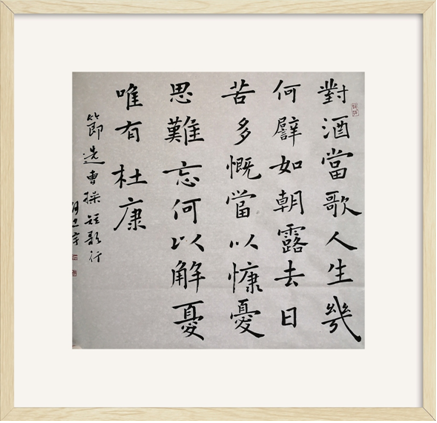 對酒當歌人生幾
何譬如朝露去日
苦多慨當以慷憂
思難忘何以解憂
唯有杜康
節选曹操短歌行